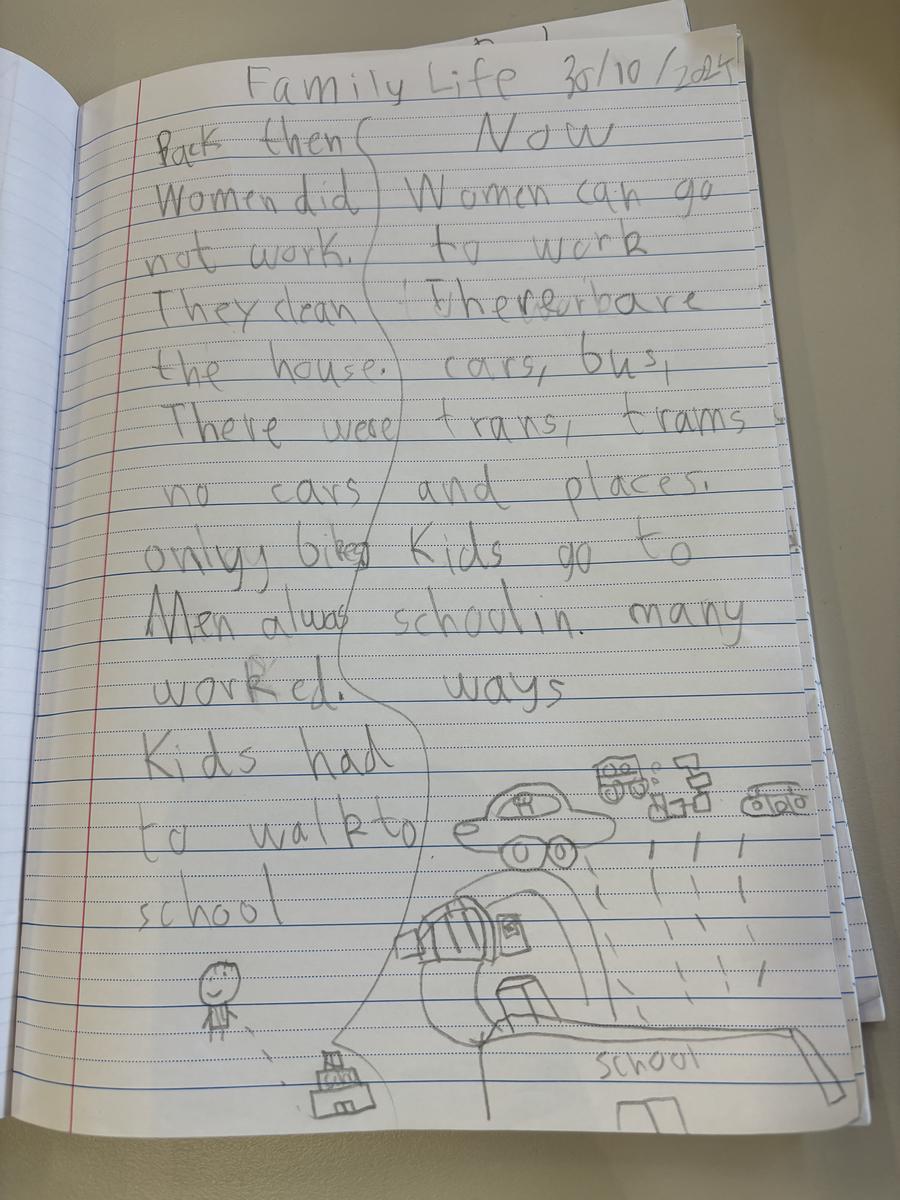 Family Life 30/10/2025
Back then
Women did
not work.
They clean
the house.
There were
no cars
onlyy bikes
Men alwas
worked.
Kids had
to walk to
school
Now
Women can go
to work
There are
cars, bus,
trans, trams
and places.
Kids go to
school in many
ways
school